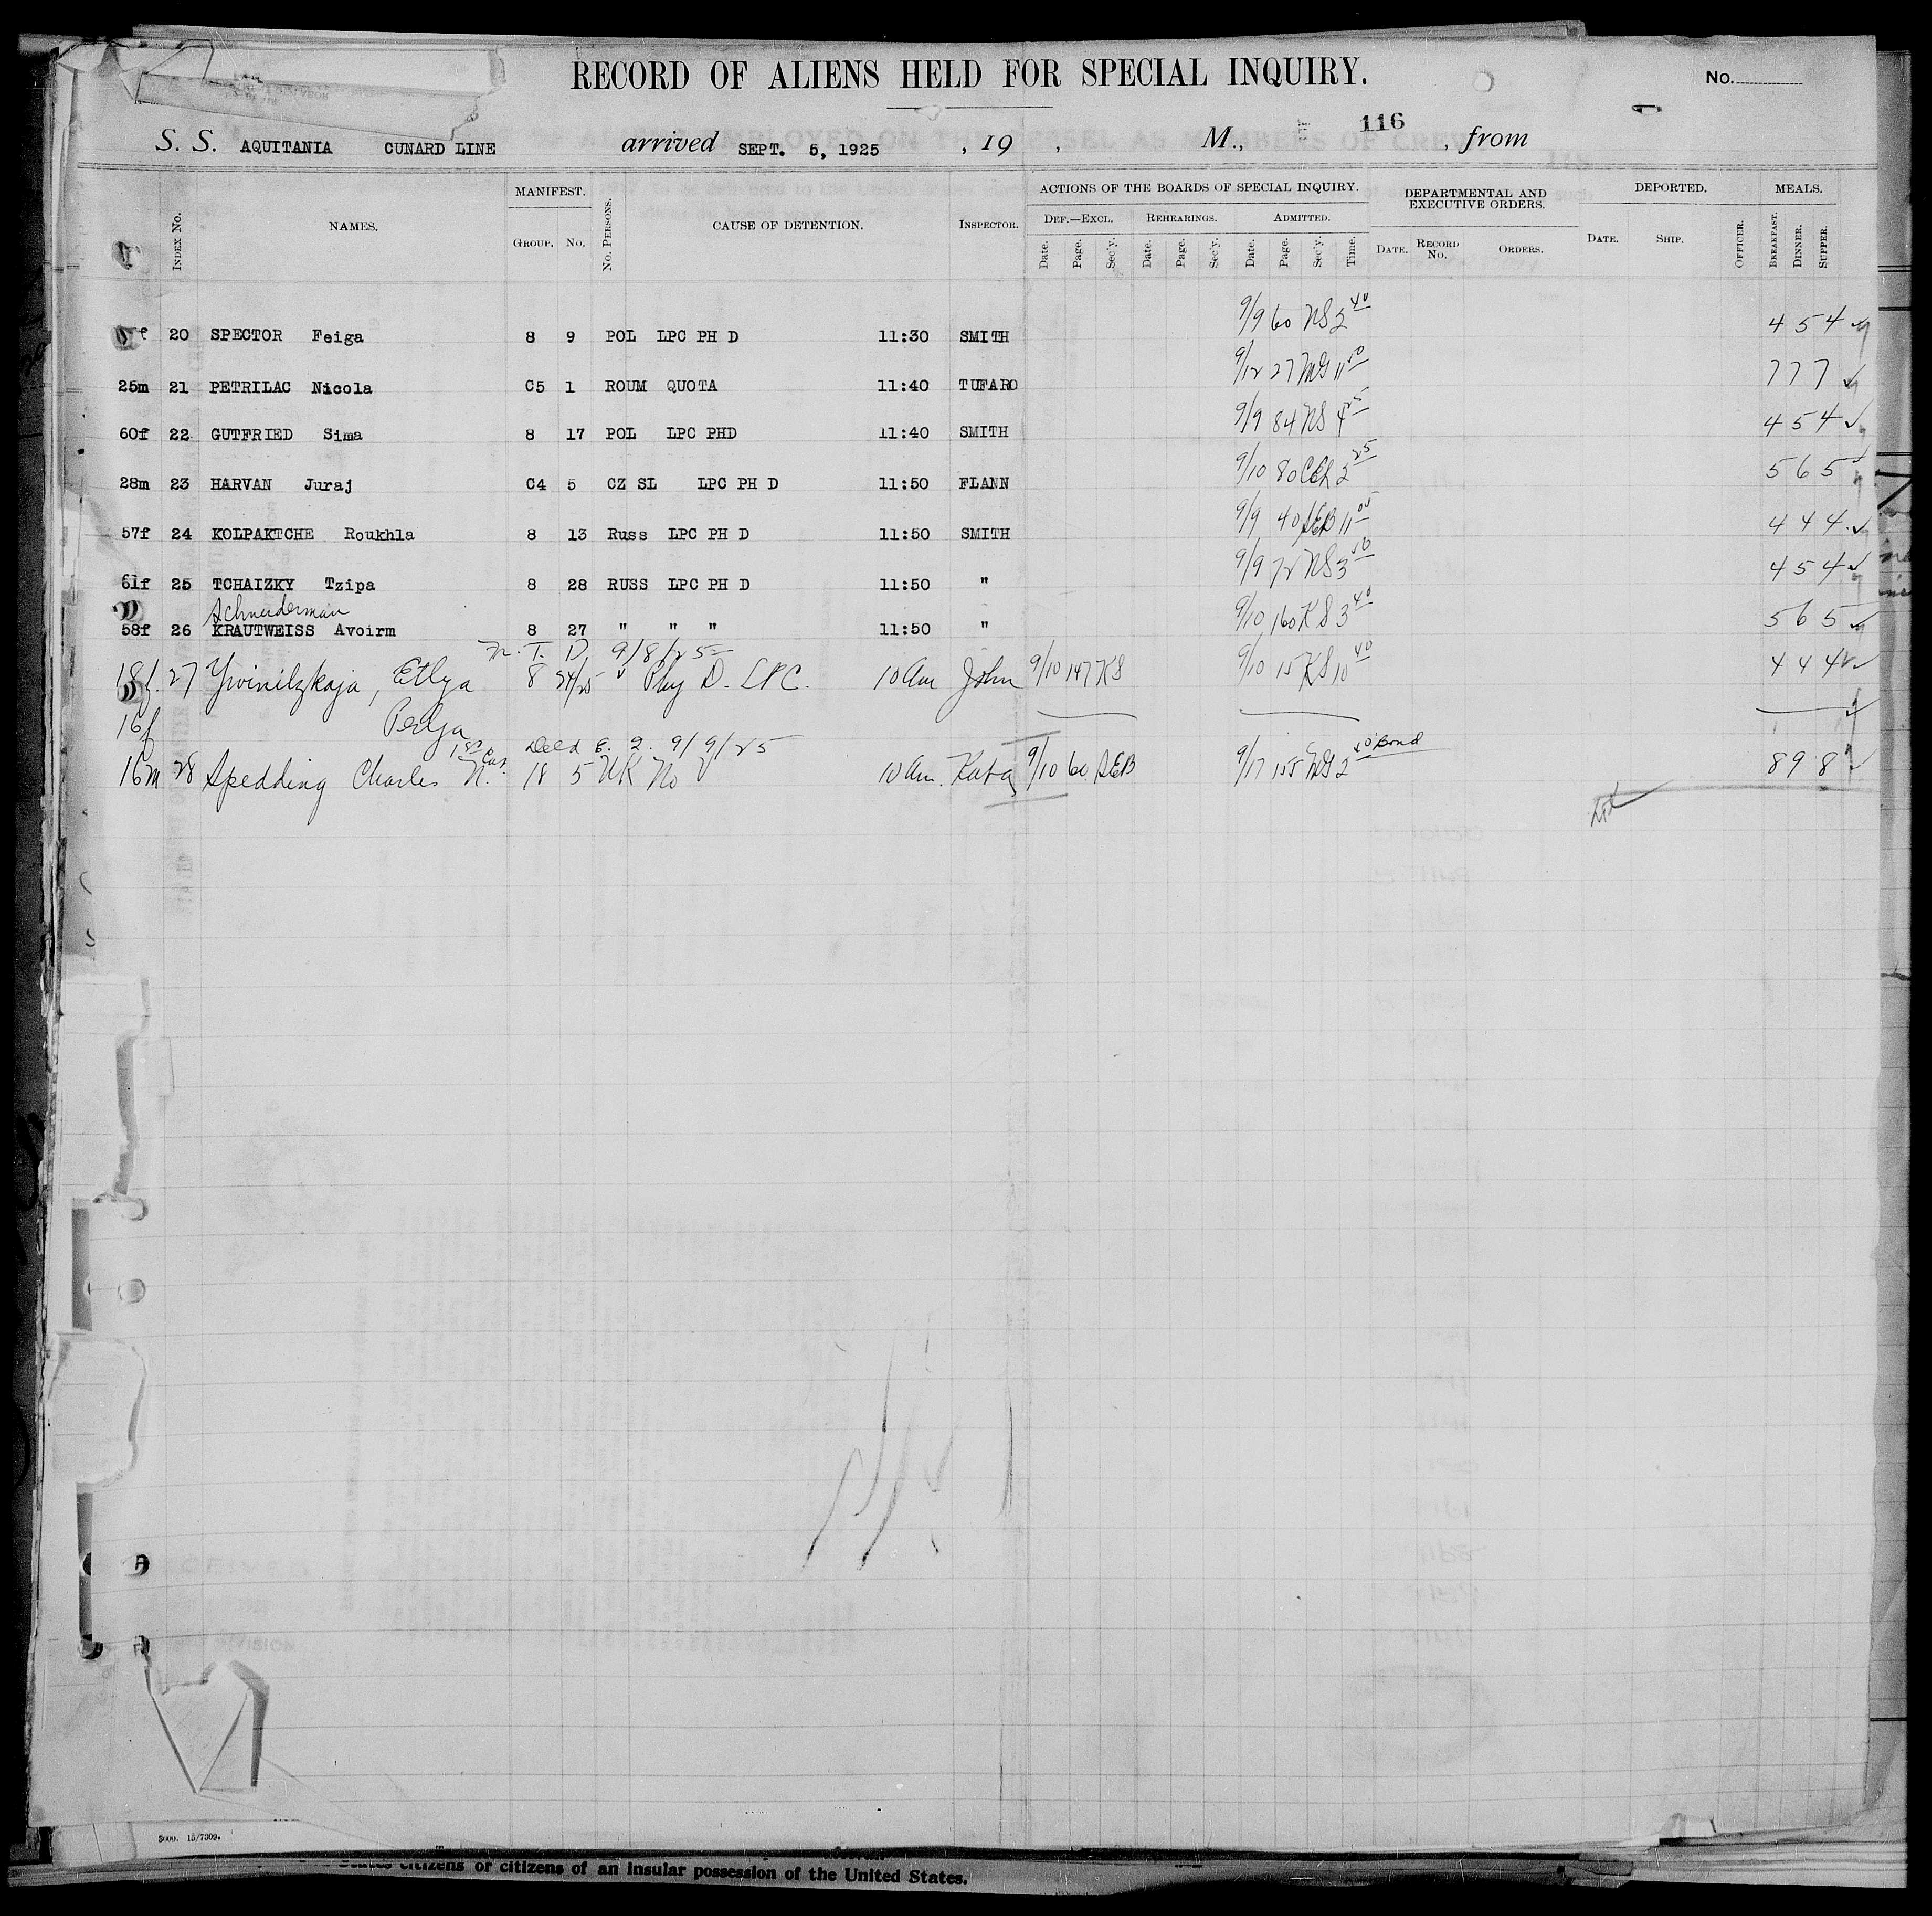 RECORD OF ALIENS HELD FOR SPECIAL INQUIRY.
No.
116
S. S. AQUITANIA CUNARD LINE arrived SEPT. 5, 1925 , 19 , M., , from
INDEX No. NAMES. MANIFEST. GROUP. No. No. PERSONS. CAUSE OF DETENTION. INSPECTOR. ACTIONS OF THE BOARDS OF SPECIAL INQUIRY. DEF.—EXCL. Date. Page. Sec'y. REHEARINGS. Date. Page. Sec'y. ADMITTED. Date. Page. Sec'y. Time. DEPARTMENTAL AND EXECUTIVE ORDERS. DATE. RECORD No. ORDERS. DEPORTED. DATE. SHIP. OFFICER. MEALS. BREAKFAST. DINNER. SUPPER.
f 20 SPECTOR Feiga 8 9 POL LPC PH D 11:30 SMITH 9/9 60 NS 2 40 4 5 4
25m 21 PETRILAC Nicola C5 1 ROUM QUOTA 11:40 TUFARO 9/12 27 MG 11 7 7 7
60f 22 GUTFRIED Sima 8 17 POL LPC PHD 11:40 SMITH 9/9 84 NS 4 4 5 4
28m 23 HARVAN Juraj C4 5 CZ SL LPC PH D 11:50 FLANN 9/10 80 2 25 5 6 5
57f 24 KOLPAKTCHE Roukhla 8 13 Russ LPC PH D 11:50 SMITH 9/9 40 SEB 11 4 4 4
61f 25 TCHAIZKY Tzipa 8 28 RUSS LPC PH D 11:50 " 9/9 72 NS 3 4 5 4
Schneiderman
58f 26 KRAUTWEISS Avoirm 8 27 " " " 11:50 " 9/10 160 KS 3 40 5 6 5
N. T. D. 9/8/25
18f. 27 Ywinilzkaja, Etlya 8 24/25 Phy D. LPC. 10 am John 9/10 147 KS 9/10 15 KS 10 40 4 4 4
16f Perlya
1st Cas. Deld 9/9/25
16m 28 Spedding Charles N. 18 5 UK No V 10 am. 9/10 60 SEB 9/17 155 MG 2 Bond 8 9 8
3000. 15/7309.
States citizens or citizens of an insular possession of the United States.